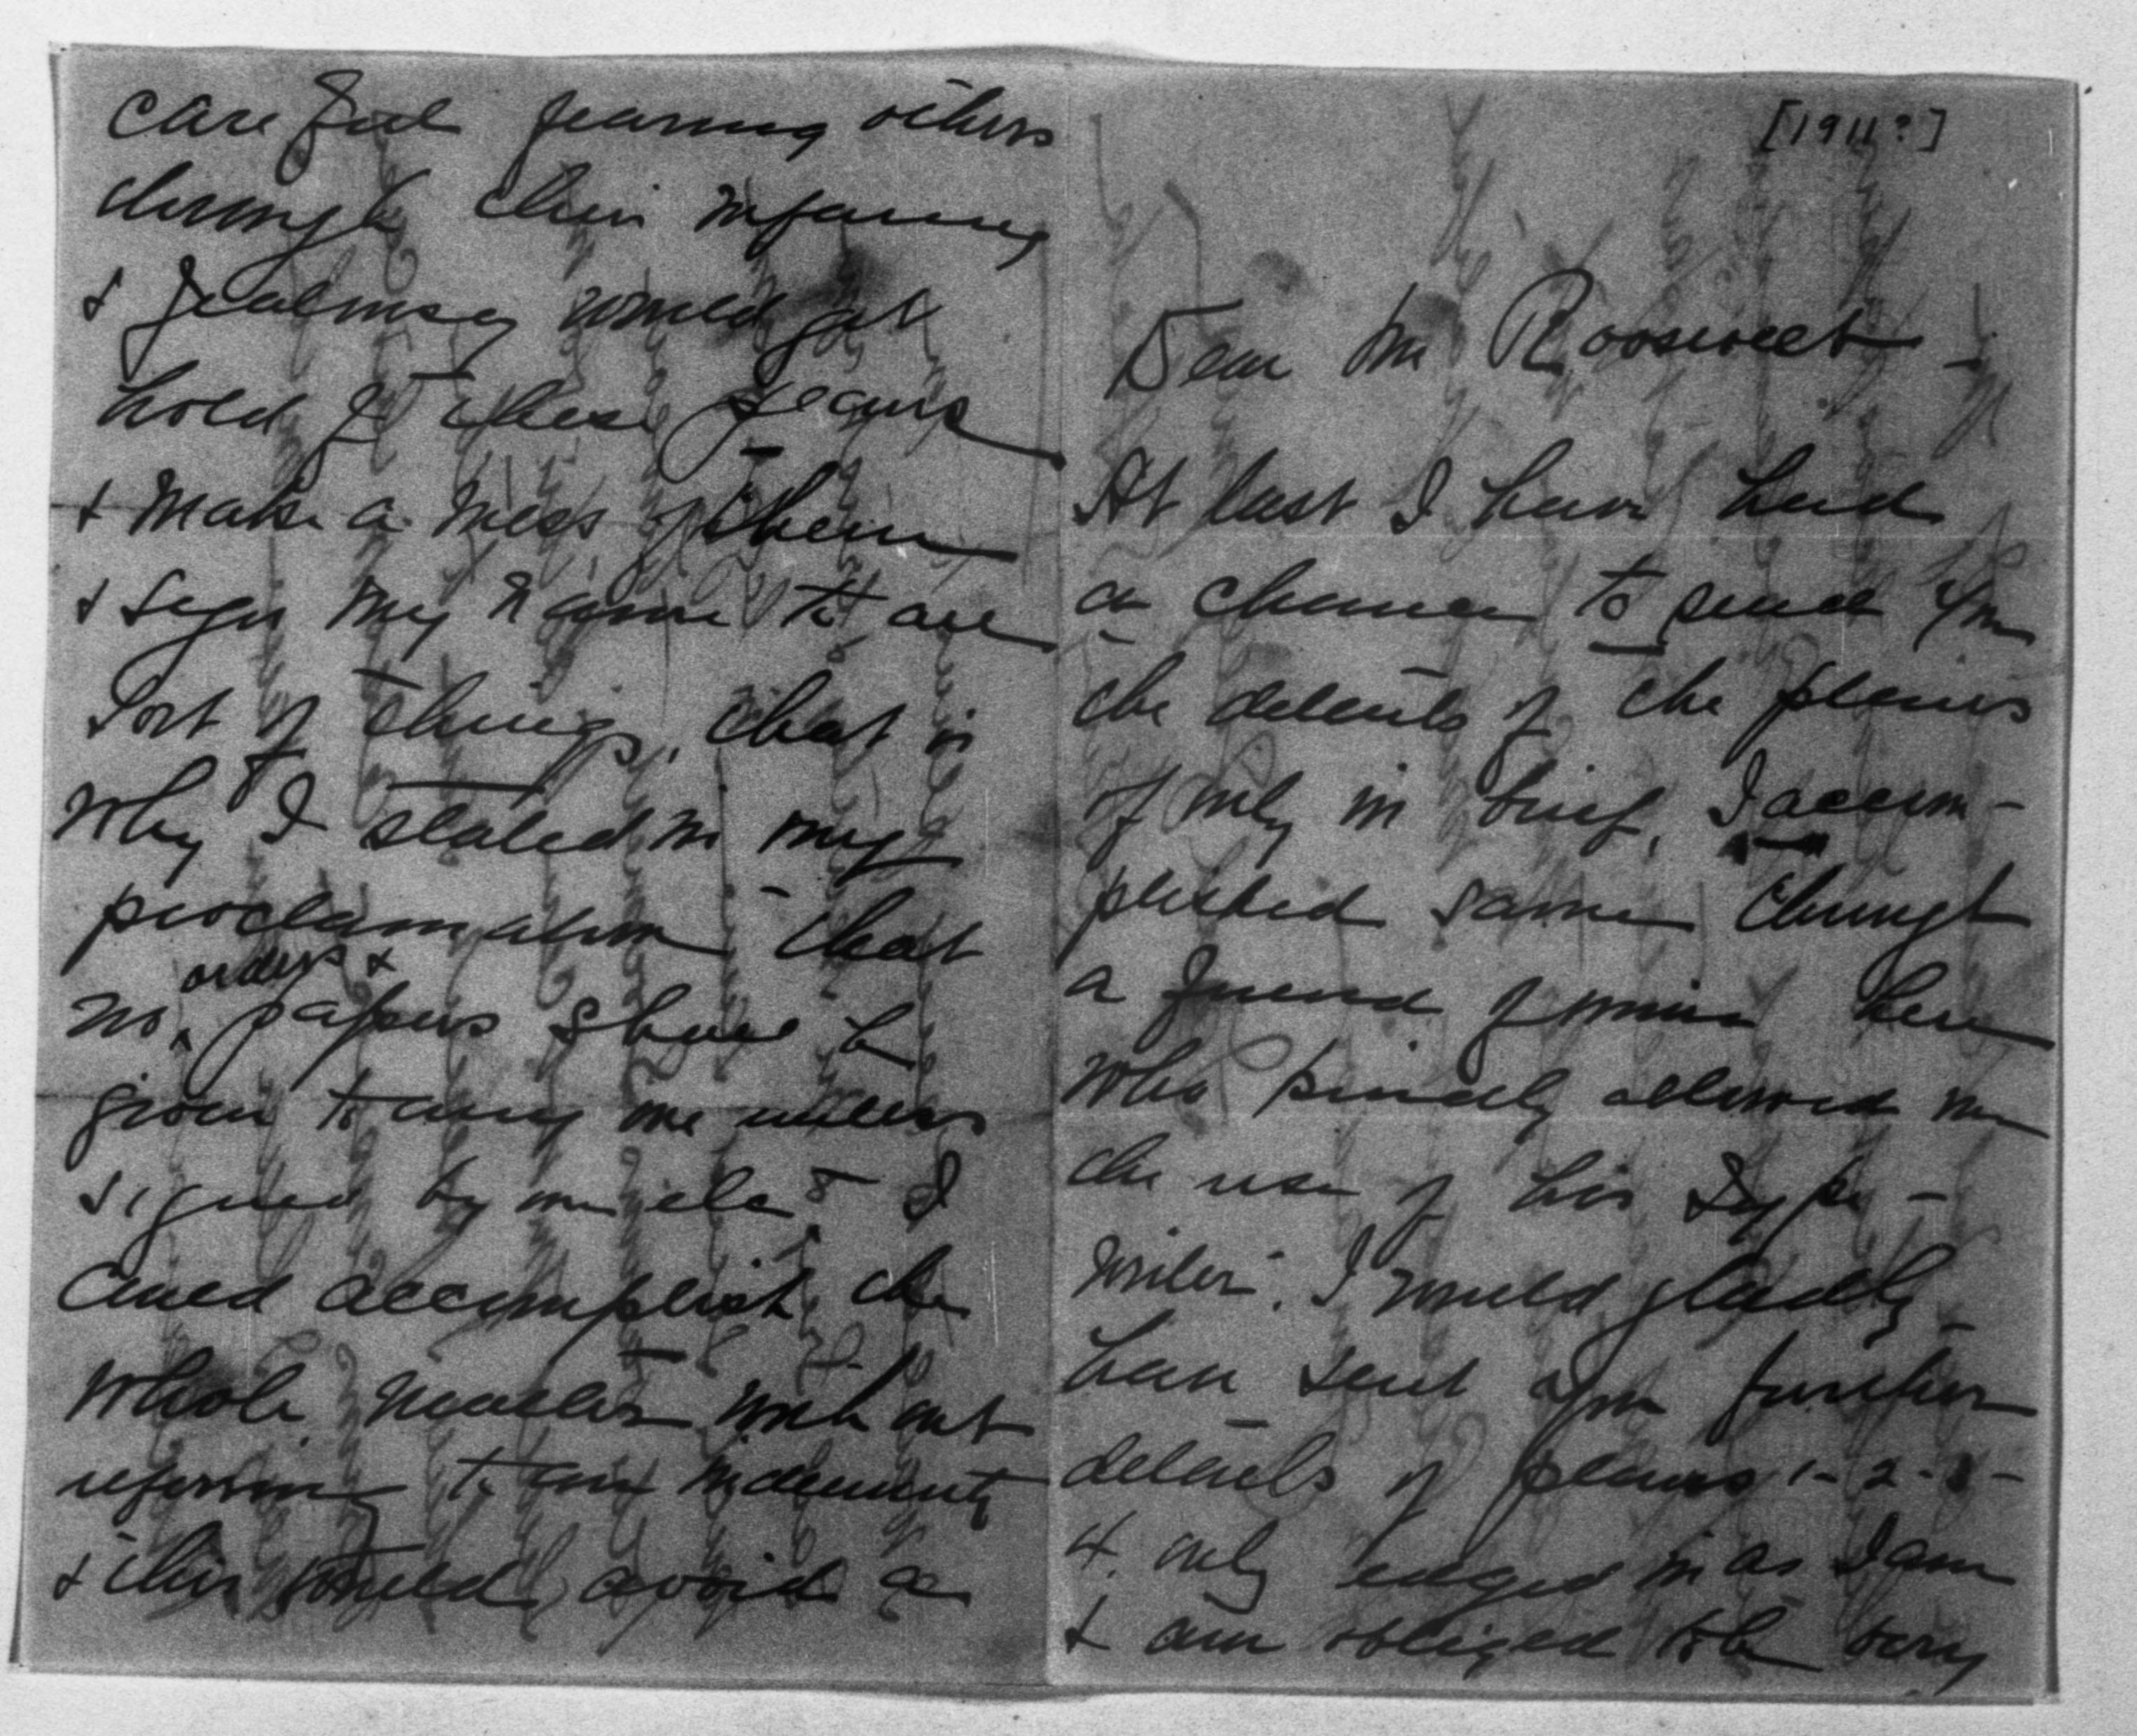 [1911?]
Dear Mr Roosevelt -
At last I have had
a chance to send you
the details of the plans
of only in brief, I accom-
plished same through
a friend of mine here
who kindly allowed me
the use of his type-
writer. I would gladly
have sent you further
details of plans 1-2-3-
4. only caged in as I am
& am obliged to be very
careful fearing others
through their infamy
& jealousy would get
hold of these plans
& make a mess of them
& sign my name to all
sort of things, that is
why I stated in my
proclamation that
no orders & papers shall be
given to any one unless
signed by me etc. I
could accomplish the
whole matter without
referring to any indemnity
& this would avoid a